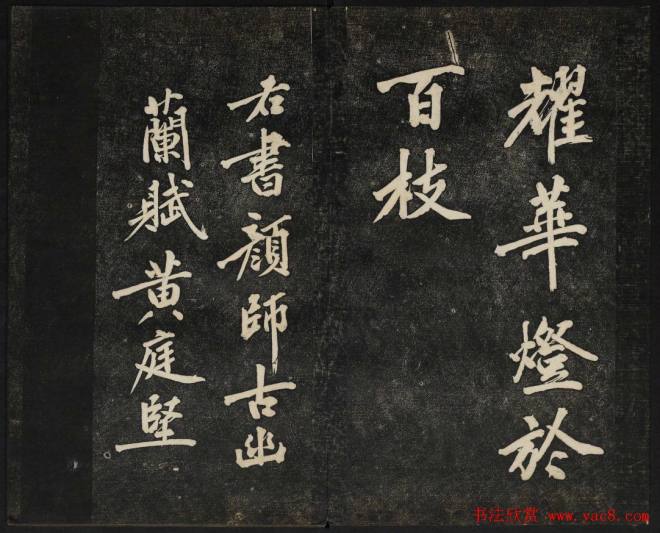 耀華燈於
百枝
右書顔師古幽
蘭賦黄庭堅
书法欣赏 www.yac8.com